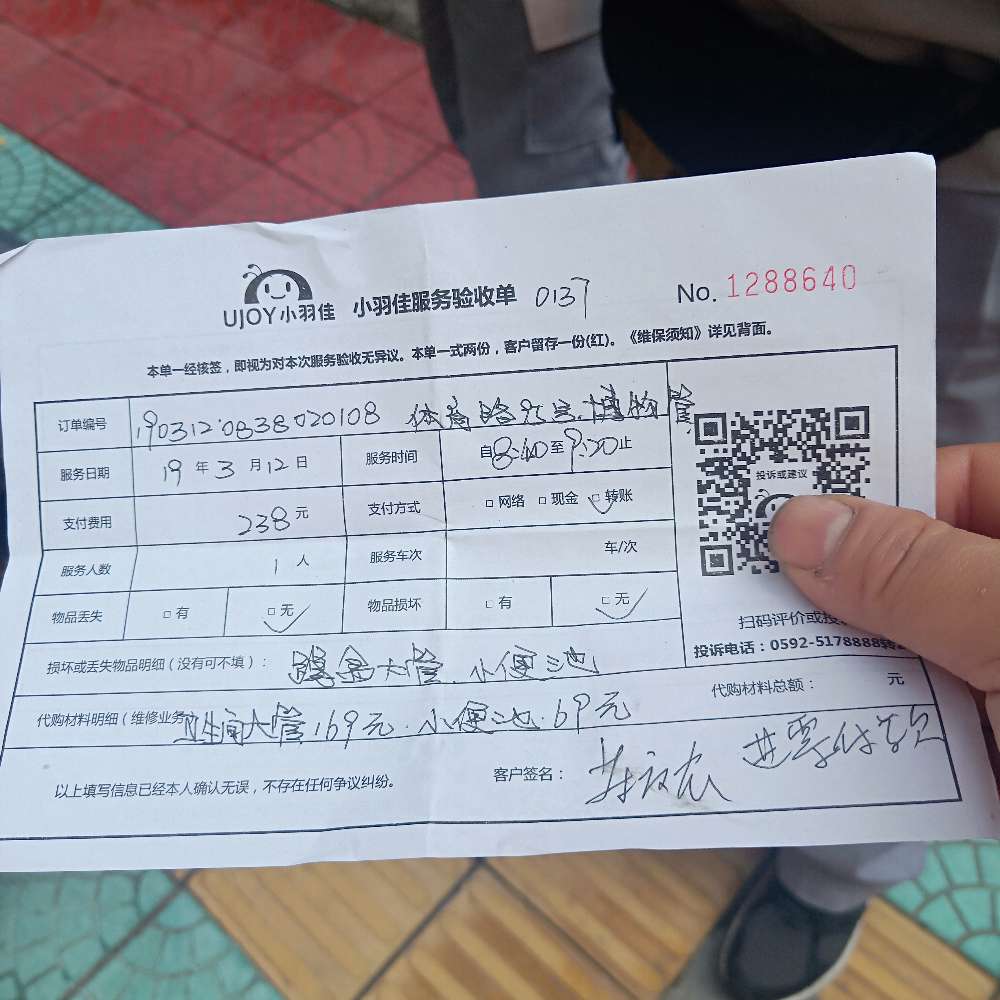 UJOY小羽佳 小羽佳服务验收单 0137 No. 1288640
本单一经核签，即视为对本次服务验收无异议。本单一式两份，客户留存一份(红)。《维保须知》详见背面。
订单编号 1903120838020108 体育路95号.博物馆
服务日期 19年3月12日 服务时间 自8:40至9:20止
投诉或建议
支付费用 238元 支付方式 □ 网络 □ 现金 □ 转账
服务人数 1人 服务车次 车/次
物品丢失 □ 有 □ 无 物品损坏 □ 有 □ 无
扫码评价或投
投诉电话：0592-5178888转
损坏或丢失物品明细（没有可不填）： 大管.小便池
代购材料明细（维修业务 卫生间大管169元.小便池.69元 代购材料总额： 元
以上填写信息已经本人确认无误，不存在任何争议纠纷。 客户签名：